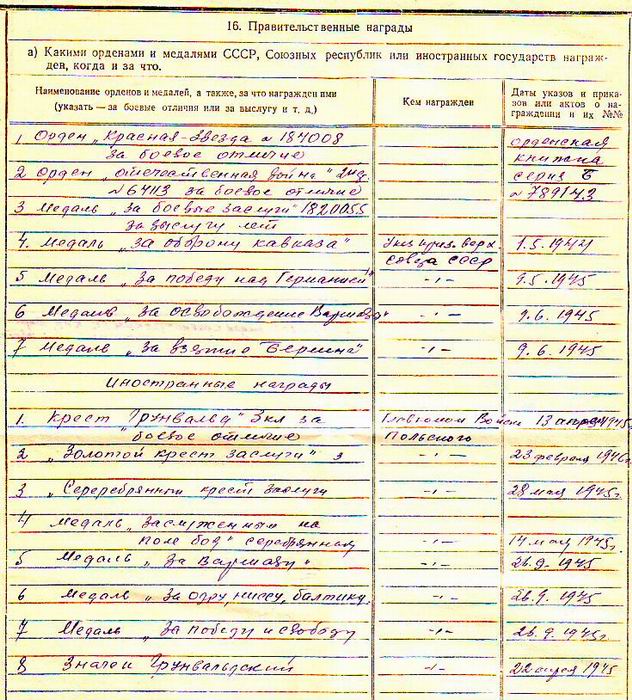 16. Правительственные награды
а) Какими орденами и медалями СССР, Союзных республик или иностранных государств награж-
ден, когда и за что.
Наименование орденов и медалей, а также, за что награжден ими
(указать — за боевые отличия или за выслугу и т. д.)
Кем награжден
Даты указов и прика-
зов или актов о на-
граждении и их №№
1 Орден „Красная-Звезда № 184008
за боевое отличие
орденская
книжка
2 Орден „отечественная война"
№ 64113 за боевое отличие
серия Б
№ 789143
3 Медаль „За боевые заслуги" 1820055
за выслугу лет
4. Медаль „За оборону Кавказа"
Указ през. верх
совета СССР
1.5.1944
5 Медаль „За победу над Германией"
-"-
9.5.1945
6 Медаль „За освобождение Варшавы"
-"-
9.6.1945
7 Медаль „За взятие Берлина"
-"-
9.6.1945
Иностранные награды
1. Крест „Грунвальд" 3 кл за
боевое отличие
Главкомом Войск
Польского
13 апреля 1945г
2 „Золотой крест заслуги" з
-"-
23 февраля 1946г
3 „Сереребрянный крест заслуги
-"-
28 мая 1945г.
4 Медаль „заслуженным на
поле боя" серебрянная
-"-
14 мая 1945г.
5 Медаль „За Варшаву"
-"-
26.9.1945
6 Медаль „За одру, ниссу, балтику.
-"-
26.9.1945
7 Медаль „За победу и свободу
-"-
26.9.1945г.
8 Значек Грунвальдский
-"-
22 1945